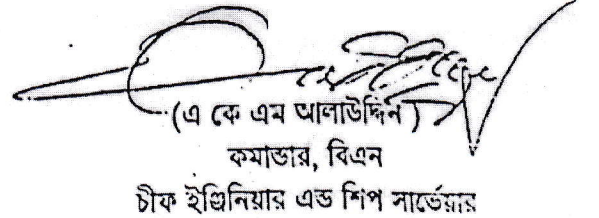 (এ কে এম আলাউদ্দিন)
কমান্ডার, বিএন
চীফ ইঞ্জিনিয়ার এন্ড শিপ সার্ভেয়ার